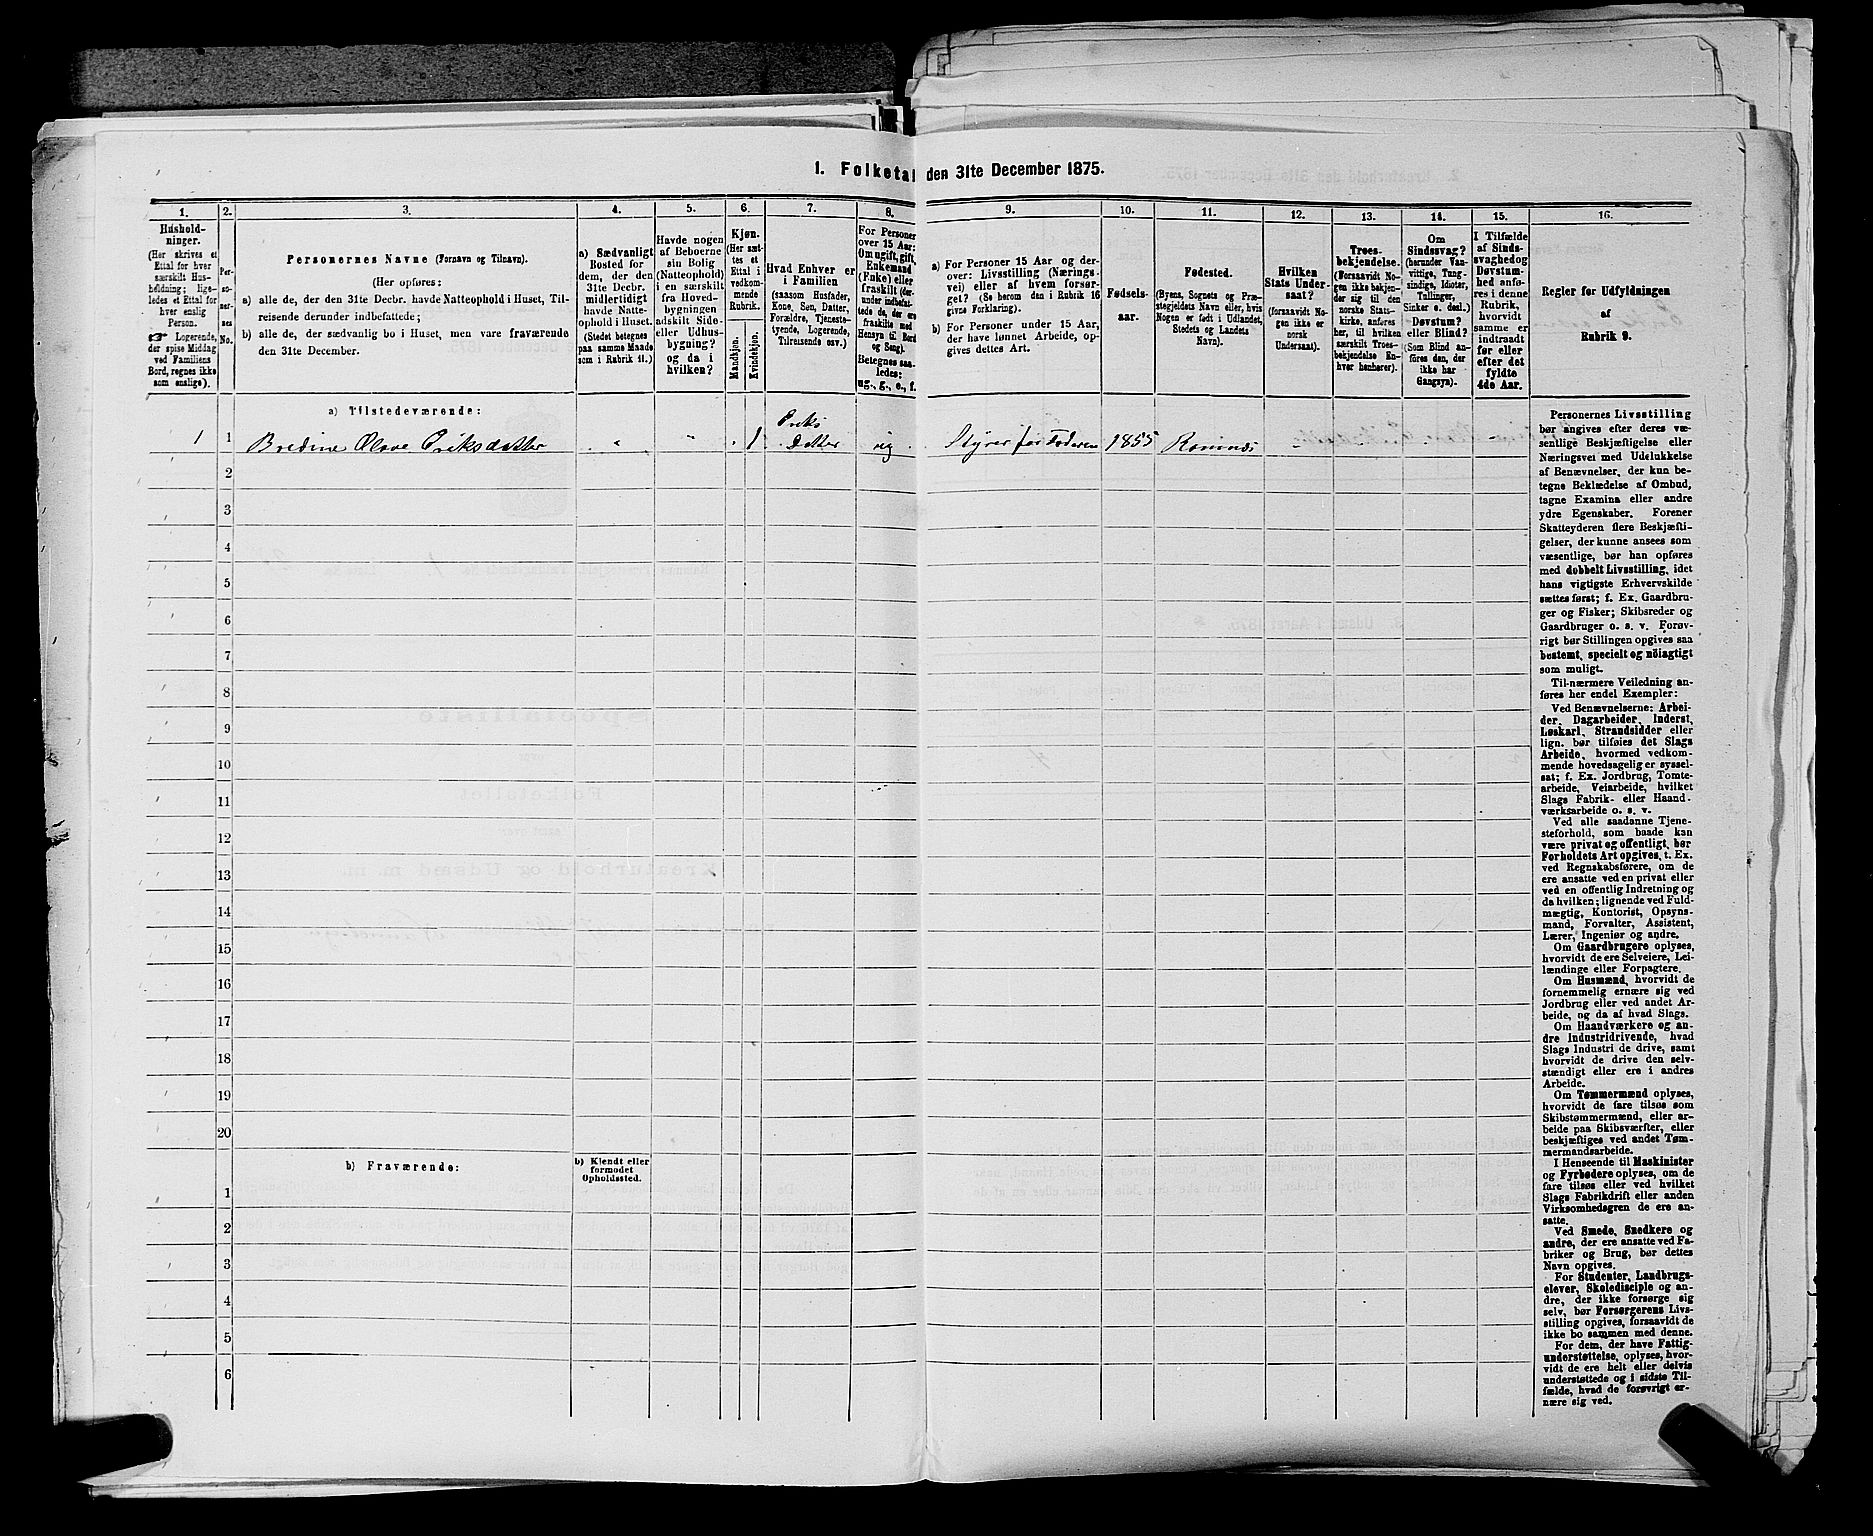 1. Folketal den 31te December 1875.
1.
Hushold-
ninger.
(Her skrives et
Ettal for hver
særskilt Hus-
holdning; lige-
ledes et Ettal for
hver enslig
Person.
☞ Logerende,
der spise Middag
ved Familiens
Bord, regnes ikke
som enslige).
2.
Per-
so-
ner-
nes
No.
3.
Personernes Navne (Fornavn og Tilnavn).
(Her opføres:
a) alle de, der den 31te Decbr. havde Natteophold i Huset, Til-
reisende derunder indbefattede;
b) alle de, der sædvanlig bo i Huset, men vare fraværende
den 31te December.
4.
a) Sædvanligt
Bosted for
dem, der den
31te Decbr.
midlertidigt
havde Natte-
ophold i Huset.
(Stedet betegnes
paa samme Maade
som i Rubrik 11.)
5.
Havde nogen
af Beboerne
sin Bolig
(Natteophold)
i en særskilt
fra Hoved-
bygningen
adskilt Side-
eller Udhus-
bygning?
og da i
hvilken?
6.
Kjøn.
(Her sæt-
tes et
Ettal i
vedkom-
mende
Rubrik.
Mandkjøn.
Kvindekjøn.
7.
Hvad Enhver er
i Familien
(saasom Husfader,
Kone, Søn, Datter,
Forældre, Tjeneste-
tyende, Logerende,
Tilreisende osv.)
8.
For Personer
over 15 Aar:
Om ugift, gift,
Enkemand
(Enke) eller
fraskilt (der-
under indbefat-
tede de, der ere
fraskilte med
Hensyn til Bord
og Seng).
Betegnes saa-
ledes:
ug., g., e., f.
9.
a) For Personer 15 Aar og der-
over: Livsstilling (Nærings-
vei) eller af hvem forsør-
get? (Se herom den i Rubrik 16
givne Forklaring).
b) For Personer under 15 Aar,
der have lønnet Arbeide, op-
gives dettes Art.
10.
Fødsels-
aar.
11.
Fødested.
(Byens, Sognets og Præ-
stegjeldets Navn eller, hvis
Nogen er født i Udlandet,
Stedets og Landets
Navn).
12.
Hvilken
Stats Under-
saat?
(forsaavidt No-
gen ikke er
norsk
Undersaat).
13.
Troes-
bekjendelse.
(Forsaavidt No-
gen ikke bekjen-
der sig til den
norske Stats-
kirke, anføres
her, til hvilken
særskilt Troes-
bekjendelse En-
hver henhører).
14.
Om
Sindssvag?
(herunder Van-
vittige, Tung-
sindige, Idioter,
Tullinger,
Sinker o. desl.)
Døvstum?
eller Blind?
(Som Blind an-
føres den, der
ikke har
Gangsyn).
15.
I Tilfælde
af Sinds-
svaghed og
Døvstum-
hed anfø-
res i denne
Rubrik,
hvorvidt
samme er
indtraadt
før eller
efter det
fyldte
4de Aar.
16.
Regler for Udfyldningen
af
Rubrik 9.
a) Tilstedeværende:
1 1 Bredine Olave Eriksdatter " " . 1 Eriks Datter ug Styrer for Foderen 1855 Ramnæs
2
3
4
5
6
7
8
9
10
11
12
13
14
15
16
17
18
19
20
b) Fraværende:
b) Kjendt eller
formodet
Opholdssted.
1
2
3
4
5
6
Personernes Livsstilling
bør angives efter deres væ-
sentlige Beskjæftigelse eller
Næringsvei med Udelukkelse
af Benævnelser, der kun be-
tegne Beklædelse af Ombud,
tagne Examina eller andre
ydre Egenskaber. Forener
Skatteyderen flere Beskjæfti-
gelser, der kunne ansees som
væsentlige, bør han opføres
med dobbelt Livsstilling, idet
hans vigtigste Erhvervskilde
sættes først; f. Ex. Gaardbru-
ger og Fisker; Skibsreder og
Gaardbruger o. s. v. Forøv-
rigt bør Stillingen opgives saa
bestemt, specielt og nöiagtigt
som muligt.
Til nærmere Veiledning an-
føres her endel Exempler:
Ved Benævnelserne: Arbei-
der, Dagarbeider, Inderst,
Løskarl, Strandsidder eller
lign. bør tilføies det Slags
Arbeide, hvormed vedkom-
mende hovedsagelig er syssel-
sat; f. Ex. Jordbrug, Tomte-
arbeide, Veiarbeide, hvilket
Slags Fabrik- eller Haand-
værksarbeide o. s. v.
Ved alle saadanne Tjene-
steforhold, som baade kan
være privat og offentligt, bør
Forholdets Art opgives, t. Ex.
ved Regnskabsførere, om de
ere ansatte ved en privat eller
ved en offentlig Indretning og
da hvilken; lignende ved Fuld-
mægtig, Kontorist, Opsyns-
mand, Forvalter, Assistent,
Lærer, Ingeniør og andre.
Om Gaardbrugere oplyses,
hvorvidt de ere Selveiere, Lei-
lændinge eller Forpagtere.
Om Husmænd, hvorvidt de
fornemmelig ernære sig ved
Jordbrug eller ved andet Ar-
beide, og da af hvad Slags.
Om Haandværkere og an-
dre Industridrivende, hvad
Slags Industri de drive, samt
hvorvidt de drive den selv-
stændigt eller ere i andres
Arbeide.
Om Tømmermænd oplyses,
hvorvidt de fare tilsøs som
Skibstømmermænd, eller ar-
beide paa Skibsværfter, eller
beskjæftiges ved andet Tøm-
mermandsarbeide.
I Henseende til Maskinister
og Fyrbødere oplyses, om de
fare tilsøs eller ved hvilket
Slags Fabrikdrift eller anden
Virksomhedsgren de ere an-
satte.
Ved Smede, Snedkere og
andre, der ere ansatte ved Fa-
briker og Brug, bør dettes
Navn opgives.
For Studenter, Landbrugs-
elever, Skoledisciple og an-
dre, der ikke forsørge sig
selv, bør Forsørgerens Livs-
stilling opgives, forsaavidt de
ikke bo sammen med denne.
For dem, der have Fattig-
understøttelse, oplyses, hvor-
vidt de ere helt eller delvis
understøttede og i sidste Til-
fælde, hvad de forøvrigt er-
nære sig ved.